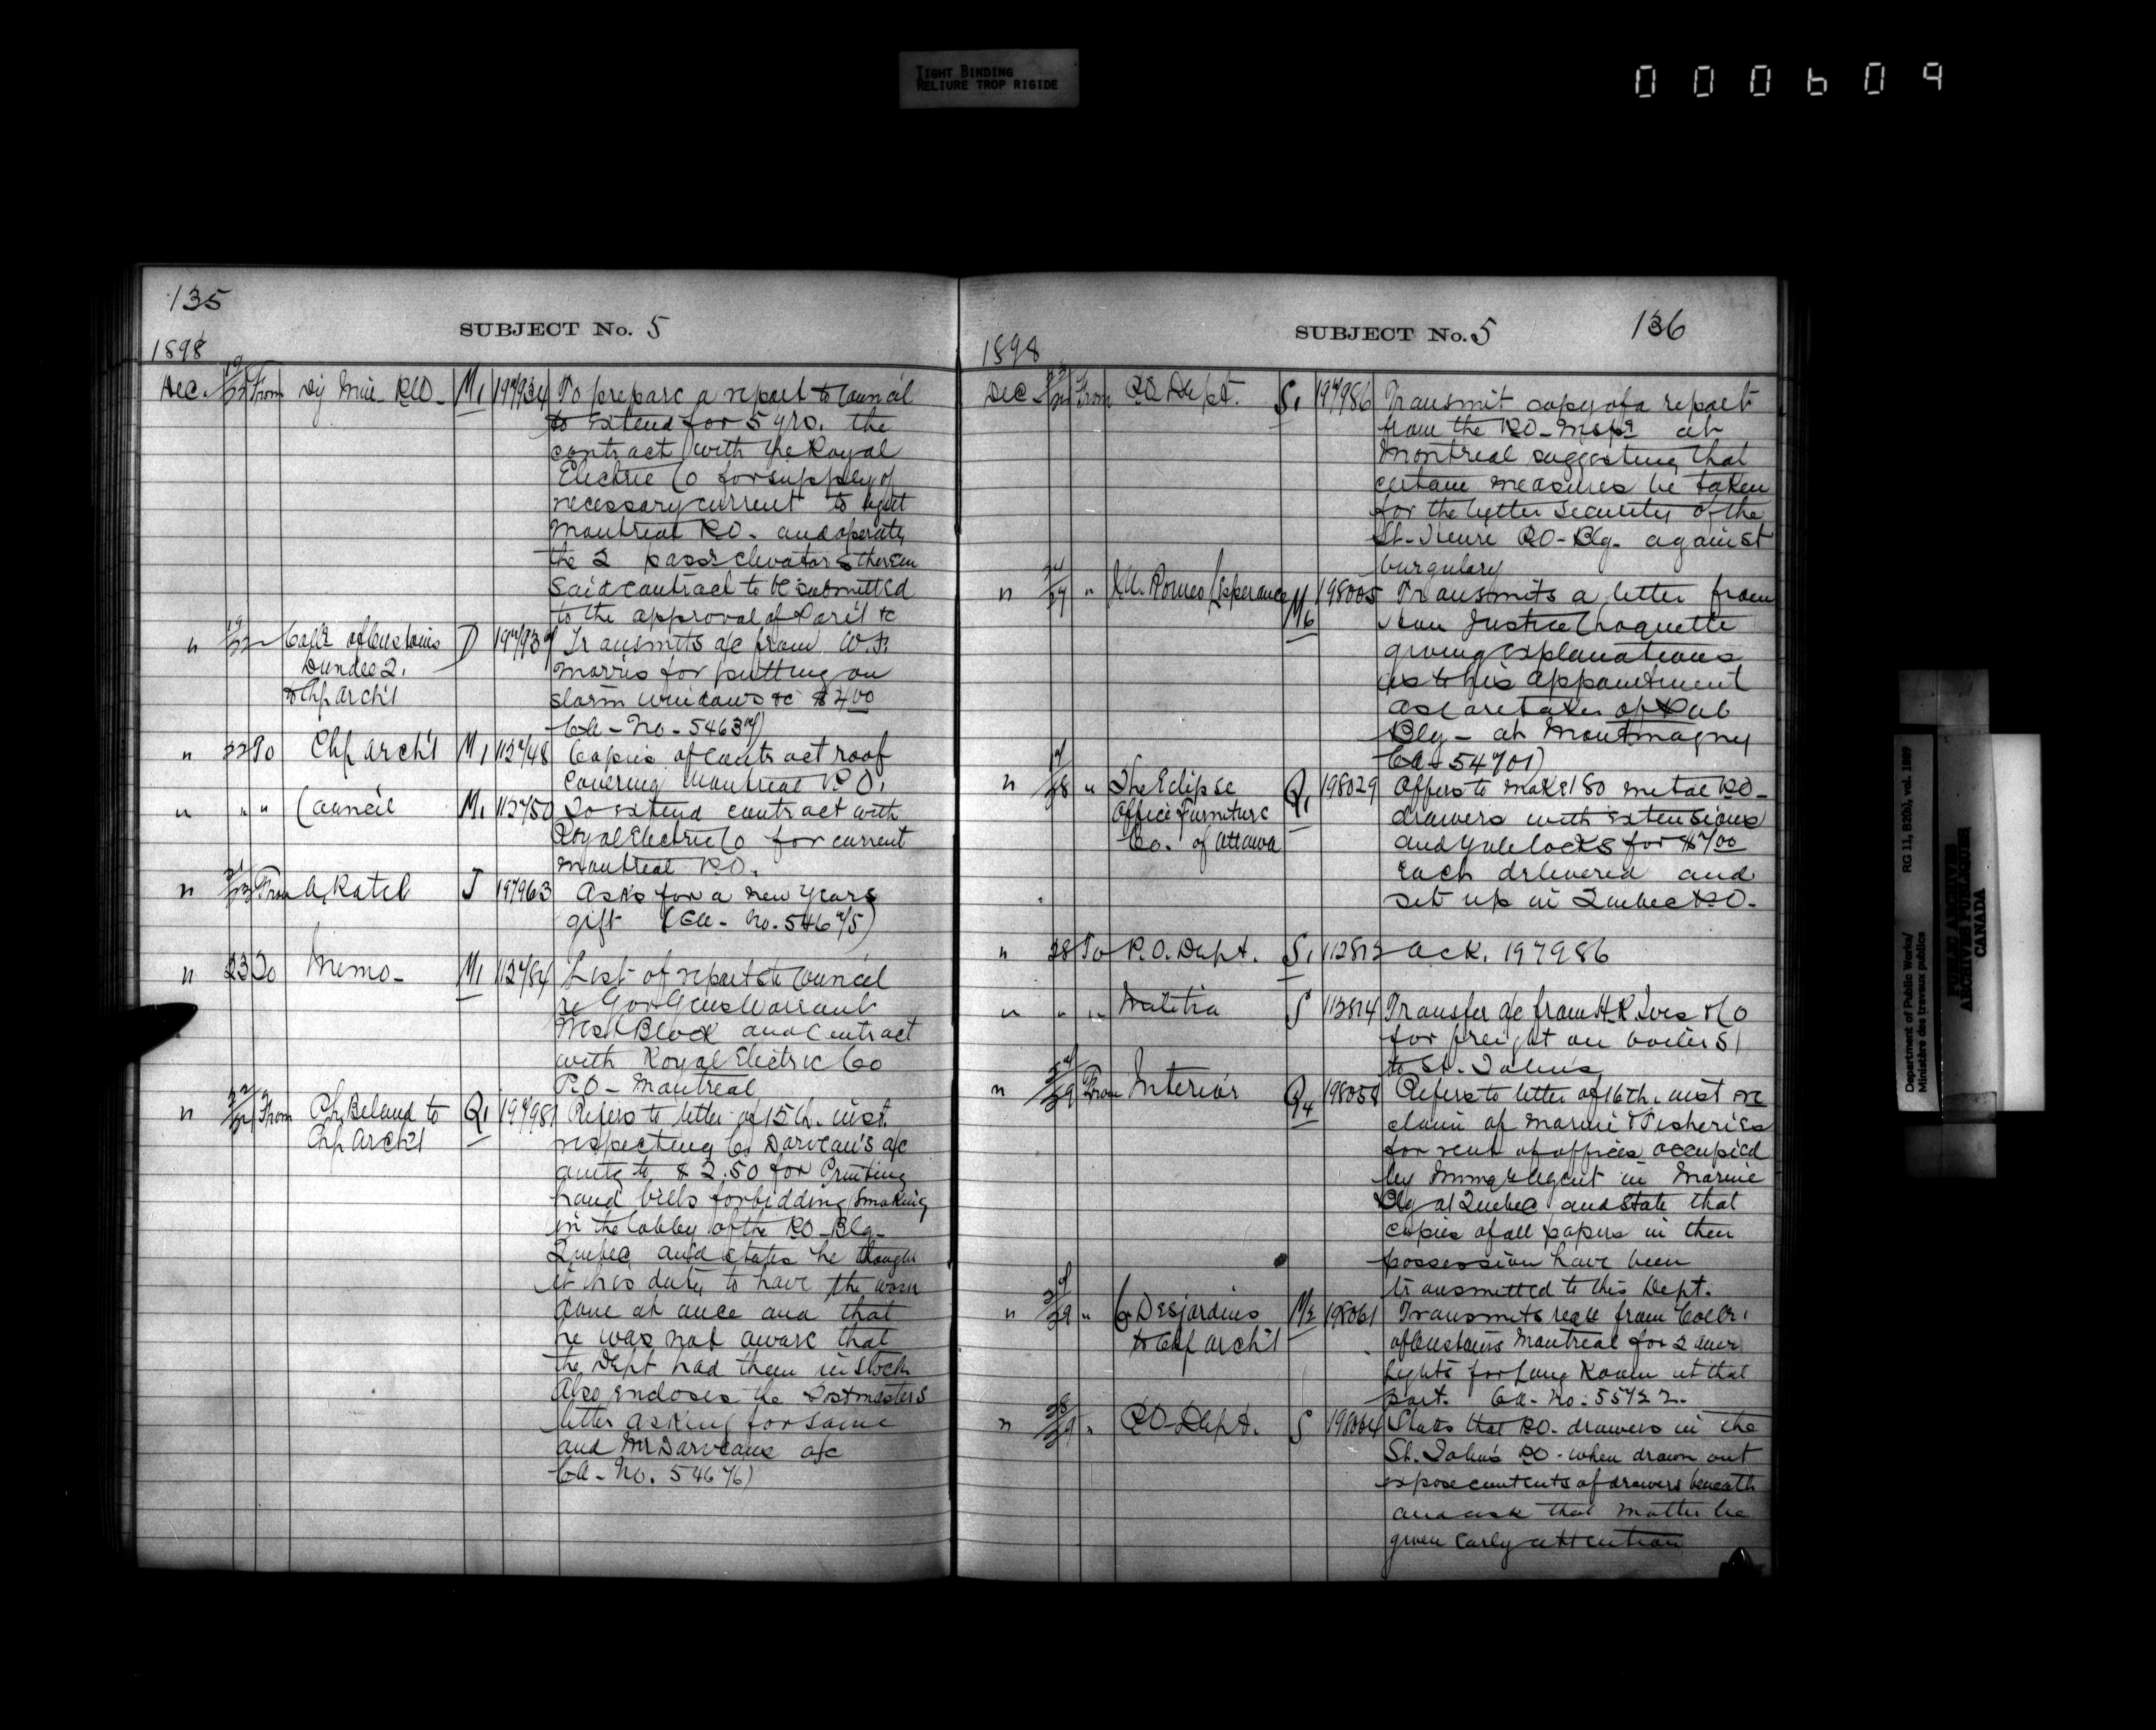 TIGHT BINDING
RELIURE TROP RIGIDE
000609
135
SUBJECT No. 5
1898
Dec. 19/22 From Dy Min. P.W. M1 197934 To prepare a report to Council
to extend for 5 yrs. the
contract with the Royal
Electric Co for supply of
necessary current to light
Montreal P.O. and operate
the 2 passr elevators therein
said contract to be submitted
to the approval of Parlt &c
" 19/22 Collr of Customs D Transmits a/c from W.F.
Dundee Q. Morris for putting on
to Chf Archt storm windows &c $4.00
" 22 To Chf Archt M1 112748 Copies of contract roof
covering Montreal P.O.
" " " Council M1 112750 To extend contract with
Royal Electric Co for current
Montreal P.O.
" 21/23 From A. Ratel J 197963 Asks for a new Years
gift (Ca- No. 54675)
" 23 To Memo- M1 112784 List of reports to Council
re Gov Gens Warrant
West Block and Contract
with Royal Electric Co
P.O- Montreal
" 22/24 From Ph. Beland to Q1 197981 Refers to letter of 15th. inst.
Chf Archt respecting C. Darveau's a/c
amtg to $2.50 for Printing
hand bills forbidding smoking
in the lobby of the P.O. Blg-
Quebec and states he thought
it his duty to have the work
done at once and that
he was not aware that
the Dept had them in stock
Also encloses the Postmasters
letter asking for same
and Mr Darveaus a/c
Ca- No. 54676)
136
SUBJECT No. 5
1898
Dec. 23/24 From P.O. Dept. S1 197986 Transmit copy of a report
from the P.O- Inspr at
Montreal suggesting that
certain measures be taken
for the better security of the
St. Pierre P.O- Blg- against
burgulary
" " M6 198005 Transmits a letter from
Hon Justice Choquette
giving explanations
as to his appointment
as caretaker of Pub
Blg- at Montmagny
Ca- 54701)
" " The Eclipse Q1 198029 Offers to make 180 metal P.O-
Office Furniture drawers with extensions
Co. of Ottawa and yale locks for $7.00
each delivered and
set up in Quebec P.O.
" 28 To P.O. Dept. S1 112813 ack. 197986
" " " Militia S 112814 Transfer a/c from H.R. Ives & Co
for freight on boilers
to St. Johns
" From Interior Q4 198058 Refers to letter of 16th. inst re
claim of Marine & Fisheries
for rent of offices occupied
by Immgr Agent in Marine
Blg at Quebec and state that
copies of all papers in their
possession have been
transmitted to this Dept.
" " C. Desjardins M2 198061 Transmits reqn from Collr.
to Chf Archt of Customs Montreal for 2 auer
lights for Long Room at that
port. Ca- No. 55722.
" 28/29 " P.O- Dept. S 198064 States that P.O. drawers in the
St. Johns P.O- when drawn out
expose contents of drawers beneath
and ask that matter be
given early attention
Department of Public Works/
Ministère des travaux publics
RG 11, B2(b), vol. 1989
PUBLIC ARCHIVES
ARCHIVES PUBLIQUES
CANADA